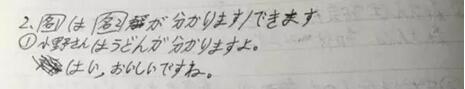 2. 名1 は 名2 が 分かります/できます
① 小野さんはうどんが分かりますよ。
はい、おいしいですね。